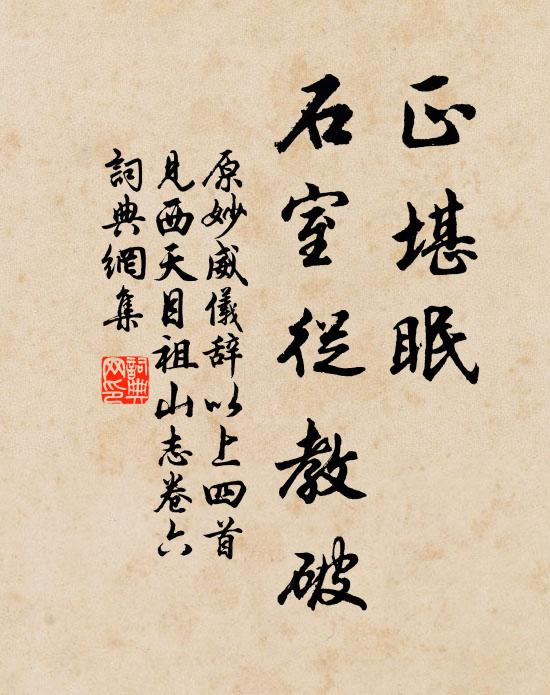 正堪眠
石室從教破
原妙威儀辞以上四首
見西天目祖山志卷六
詞典網集
詞典
网印